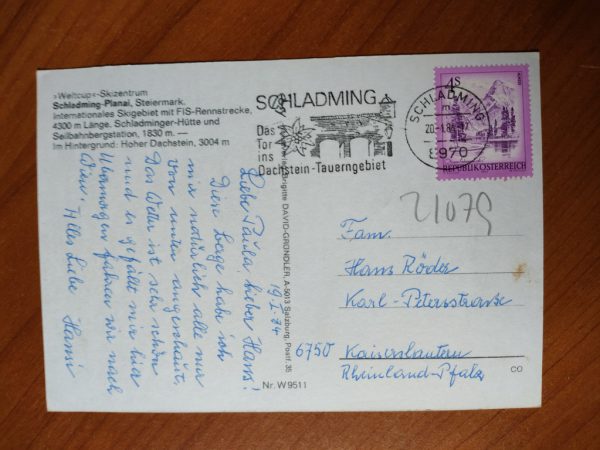 »Weltcup«-Skizentrum
Schladming-Planai, Steiermark,
Internationales Skigebiet mit FIS-Rennstrecke,
4300 m Länge. Schladminger-Hütte und
Seilbahnbergstation, 1830 m. —
Im Hintergrund: Hoher Dachstein, 3004 m
19.I.84
Liebe Paula! Lieber Hans!
Diese Berge habe ich
mir natürlich alle nur
von unten angeschaut.
Das Wetter ist sehr schön
und es gefällt mir hier
Übermorgen fahren wir nach
Wien. Alles Liebe Hansi
Brigitte DAVID-GRÜNDLER, A-5013 Salzburg, Postf. 35
Nr. W 9511
SCHLADMING
Das
Tor
ins
Dachstein-Tauerngebiet
SCHLADMING
8970
4S
REPUBLIK ÖSTERREICH
21079
Fam.
Hans Röder
Karl-Petersstrasse
6750 Kaiserslautern
Rheinland-Pfalz
CO